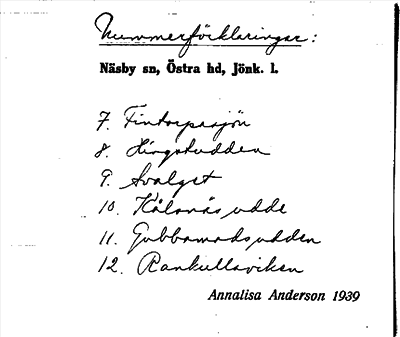 Nummerförklaringar:
Näsby sn, Östra hd, Jönk. l.
7. Fintorpasjön
8. Hingstudden
9. Svalget
10. Kålanäsudde
11. Gubbamadsudden
12. Rankullaviken
Annalisa Anderson 1939